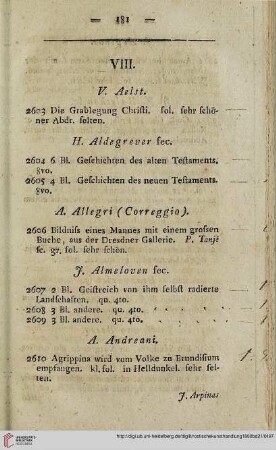 181
VIII.
V. Aelst.
2603 Die Grablegung Christi. fol. sehr schö-
ner Abdr. selten.
H. Aldegrever fec.
2604 6 Bl. Geschichten des alten Testaments.
8vo.
2605 4 Bl. Geschichten des neuen Testaments.
8vo.
A. Allegri (Correggio).
2606 Bildniss eines Mannes mit einem grossen
Buche, aus der Dresdner Gallerie. P. Tanjé
sc. gr. fol. sehr schön.
J. Almeloven fec.
2607 2 Bl. Geistreich von ihm selbst radierte
Landschaften. qu. 4to.
2608 3 Bl. andere. qu. 4to.
2609 3 Bl. andere. qu. 4to.
A. Andreani.
2610 Agrippina wird vom Volke zu Brundisium
empfangen. kl. fol. in Helldunkel. sehr sel-
ten.
J. Arpinas